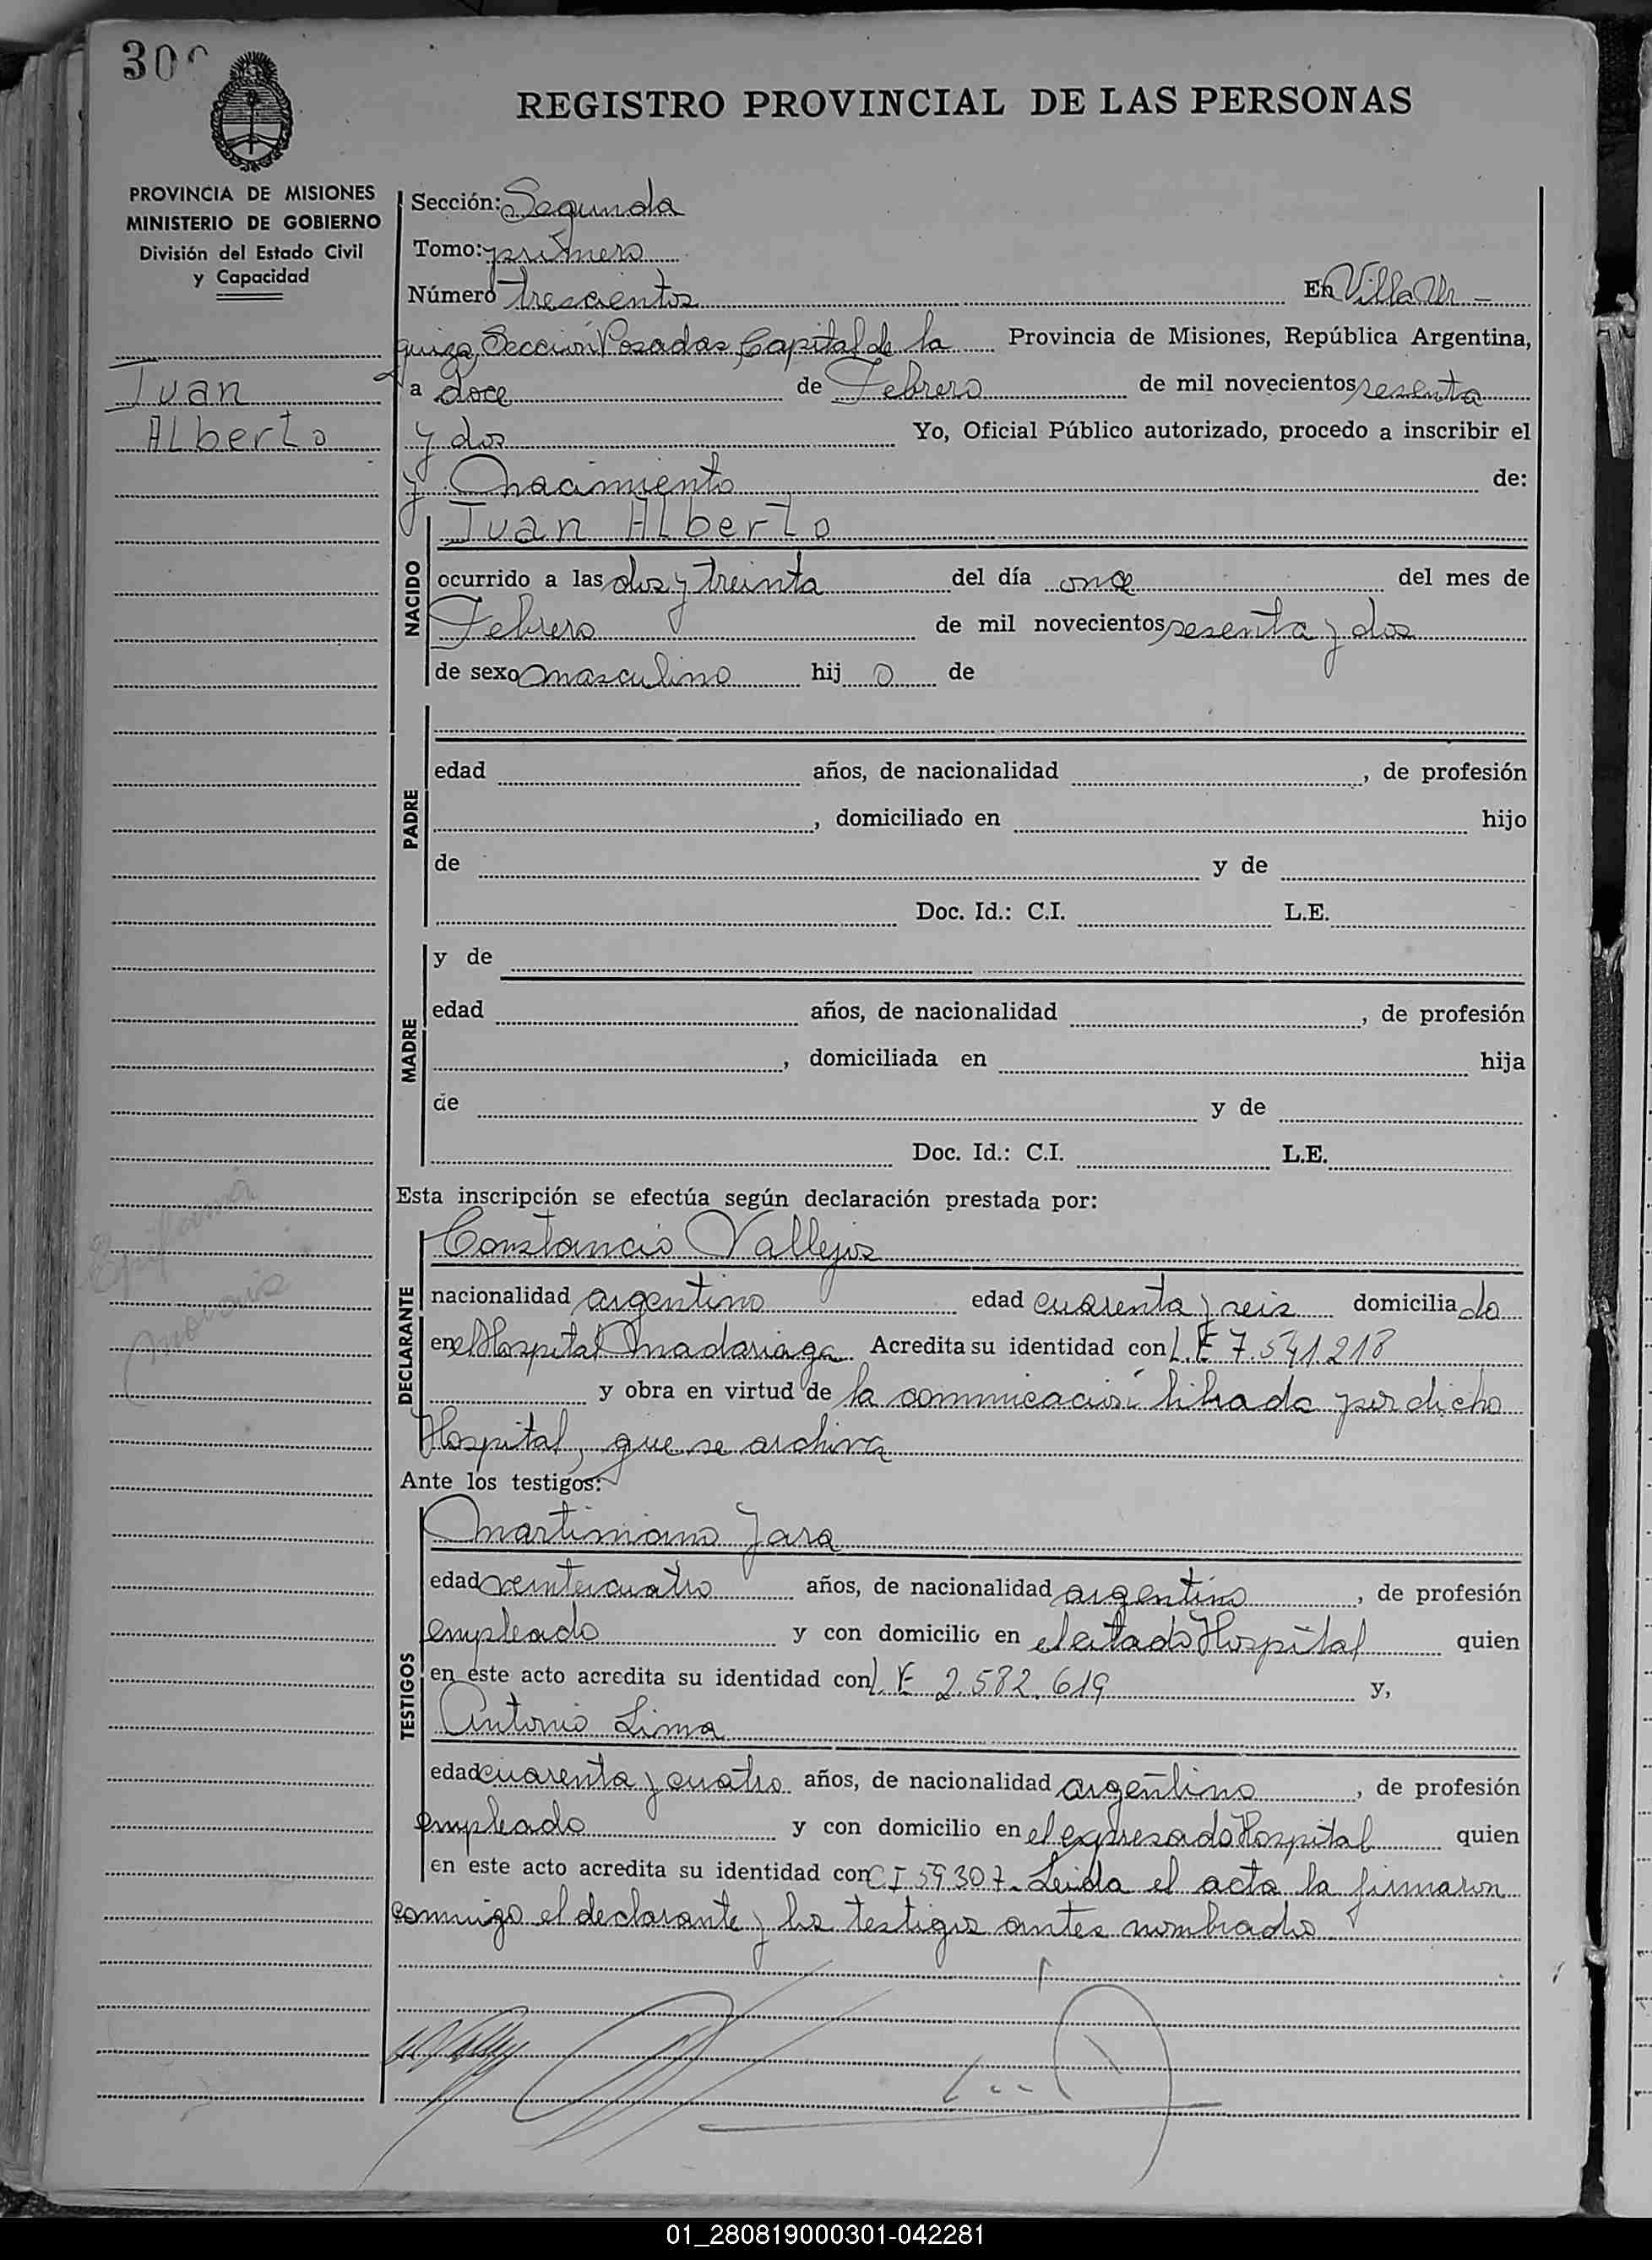 30
REGISTRO PROVINCIAL DE LAS PERSONAS
PROVINCIA DE MISIONES
MINISTERIO DE GOBIERNO
División del Estado Civil
y Capacidad
Juan
Alberto
Sección: Segunda
Tomo: primero
Número trescientos En Villa Ur-
quiza, Sección Posadas, Capital de la Provincia de Misiones, República Argentina,
a doce de Febrero de mil novecientos sesenta
y dos Yo, Oficial Público autorizado, procedo a inscribir el
nacimiento de:
NACIDO
Juan Alberto
ocurrido a las dos y treinta del día once del mes de
Febrero de mil novecientos sesenta y dos
de sexo masculino hij o de
PADRE
edad años, de nacionalidad , de profesión
, domiciliado en hijo
de y de
Doc. Id.: C.I. L.E.
MADRE
y de
edad años, de nacionalidad , de profesión
, domiciliada en hija
de y de
Doc. Id.: C.I. L.E.
Esta inscripción se efectúa según declaración prestada por:
DECLARANTE
Constancio Vallejos
nacionalidad argentino edad cuarenta y seis domicilia do
en el Hospital Madariaga Acredita su identidad con L.E 7.541.218
y obra en virtud de la comunicación librada por dicho
Hospital, que se archiva
Ante los testigos:
TESTIGOS
Martiniano Jara
edad veinticuatro años, de nacionalidad argentino , de profesión
empleado y con domicilio en el citado Hospital quien
en este acto acredita su identidad con L.E 2.582.619 y,
Antonio Lima
edad cuarenta y cuatro años, de nacionalidad argentino , de profesión
empleado y con domicilio en el expresado Hospital quien
en este acto acredita su identidad con C I 59307.- Leida el acta la firmaron
conmigo el declarante y los testigos antes nombrados
01_280819000301-042281